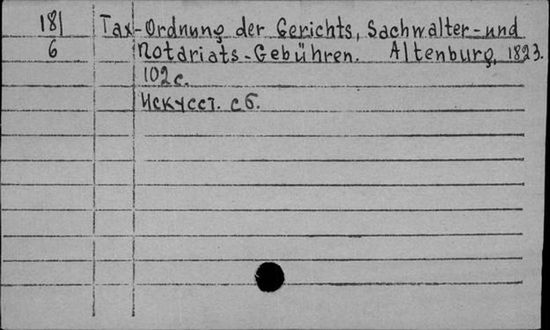 181 Tax-Ordnung der Gerichts, Sachwalter- und
6 Notariats-Gebühren. Altenburg, 1823.
102 с.
Искусст. сб.